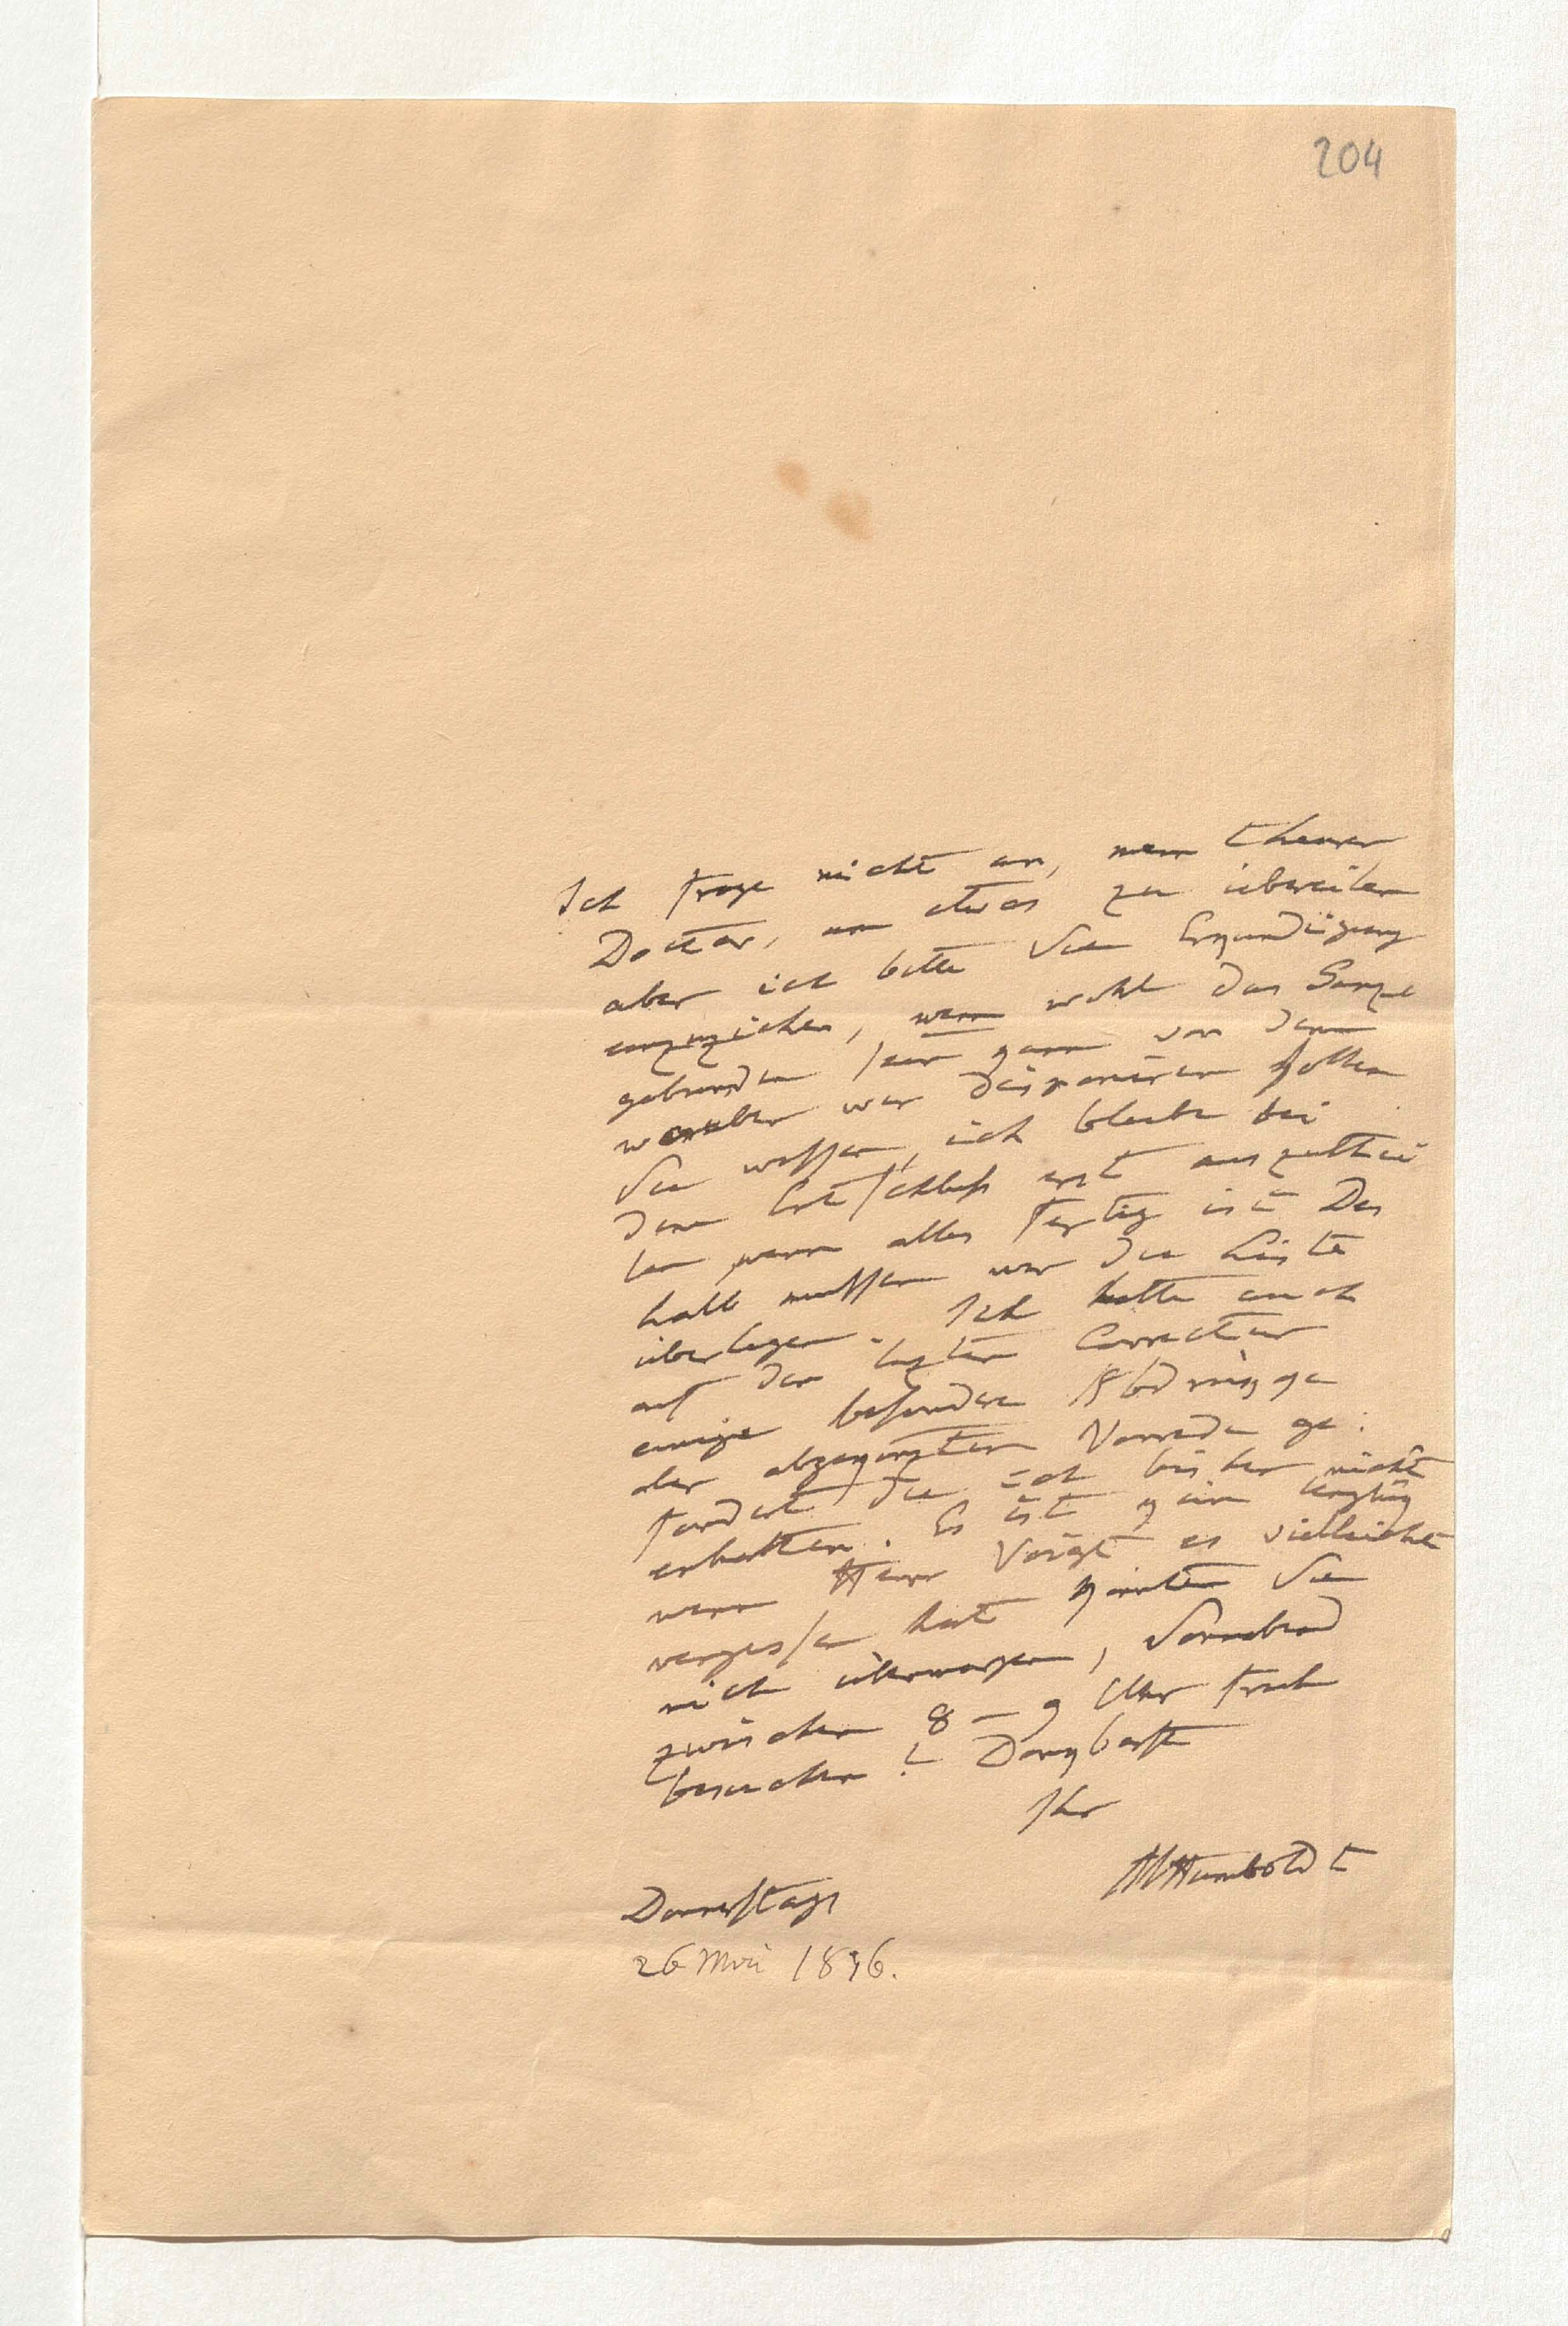 204
Ich frage nicht an, mein theurer
Doctor, um etwas zu übereilen
aber ich bitte Sie Erkundigung
einzuziehen, wenn wohl das Ganze
gebunden sein kann von dem
worüber wir disponiren sollen
Sie wissen, ich bleibe bei
dem Entschluß erst auszuthei
len wenn alles fertig ist Des
halb müssen wir die Liste
überlegen. Ich hatte auch
auf der lezten Correctur
einige besondere Abdrükke
der abgekürzten Vorrede ge:
fordert die ich bisher nicht
erhalten. Es ist kein Unglük
wenn Herr Voigt es vielleicht
vergessen hat Könnten Sie
mich übermorgen, Sonnabend
zwischen 8 – 9 Uhr früh
besuchen? Dankbarst
Ihr
AlHumboldt
Donnerstags
26 Mai 1836.